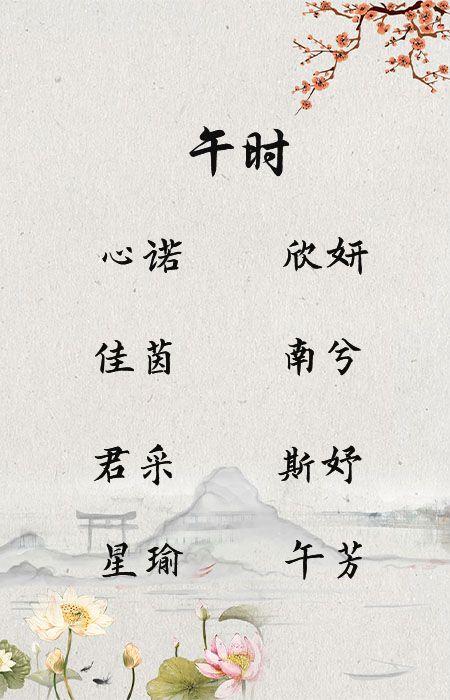 午时
心诺 欣妍
佳茵 南兮
君采 斯妤
星瑜 午芳